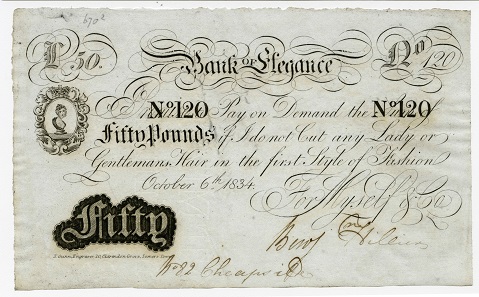 670²
£50. Bank of Elegance No 120
I Promise to No 120 Pay on Demand the No 120
Fifty Pounds if I do not Cut any Lady or
Gentlemans Hair in the first Style of Fashion
October 6th 1834.
For Myself & Co
Fifty
No 82 Cheapside